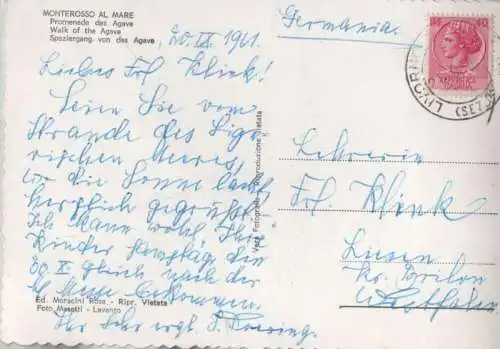 MONTEROSSO AL MARE
Promenade des Agave
Walk of the Agave
Spaziergang von des Agave
20. IX. 1961.
Liebes Frl. Klink!
Seien Sie vom
Strande des Ligu-
rischen Meeres,
wo die Sonne lacht
herzlich gegrüßt.
Ich kann wohl Ihre
Kinder
30. IX. gleich nach der
bekommen.
Ihr sehr ergb.
Ed. Moracini Rosa - Ripr. Vietata
Foto Masetti - Levanto
Vera Fotografia - Riproduzione vietata
Germania.
LIVORN
Lehrerin
Frl. Klink
Liesen
Kr. Brilon
Westfalen